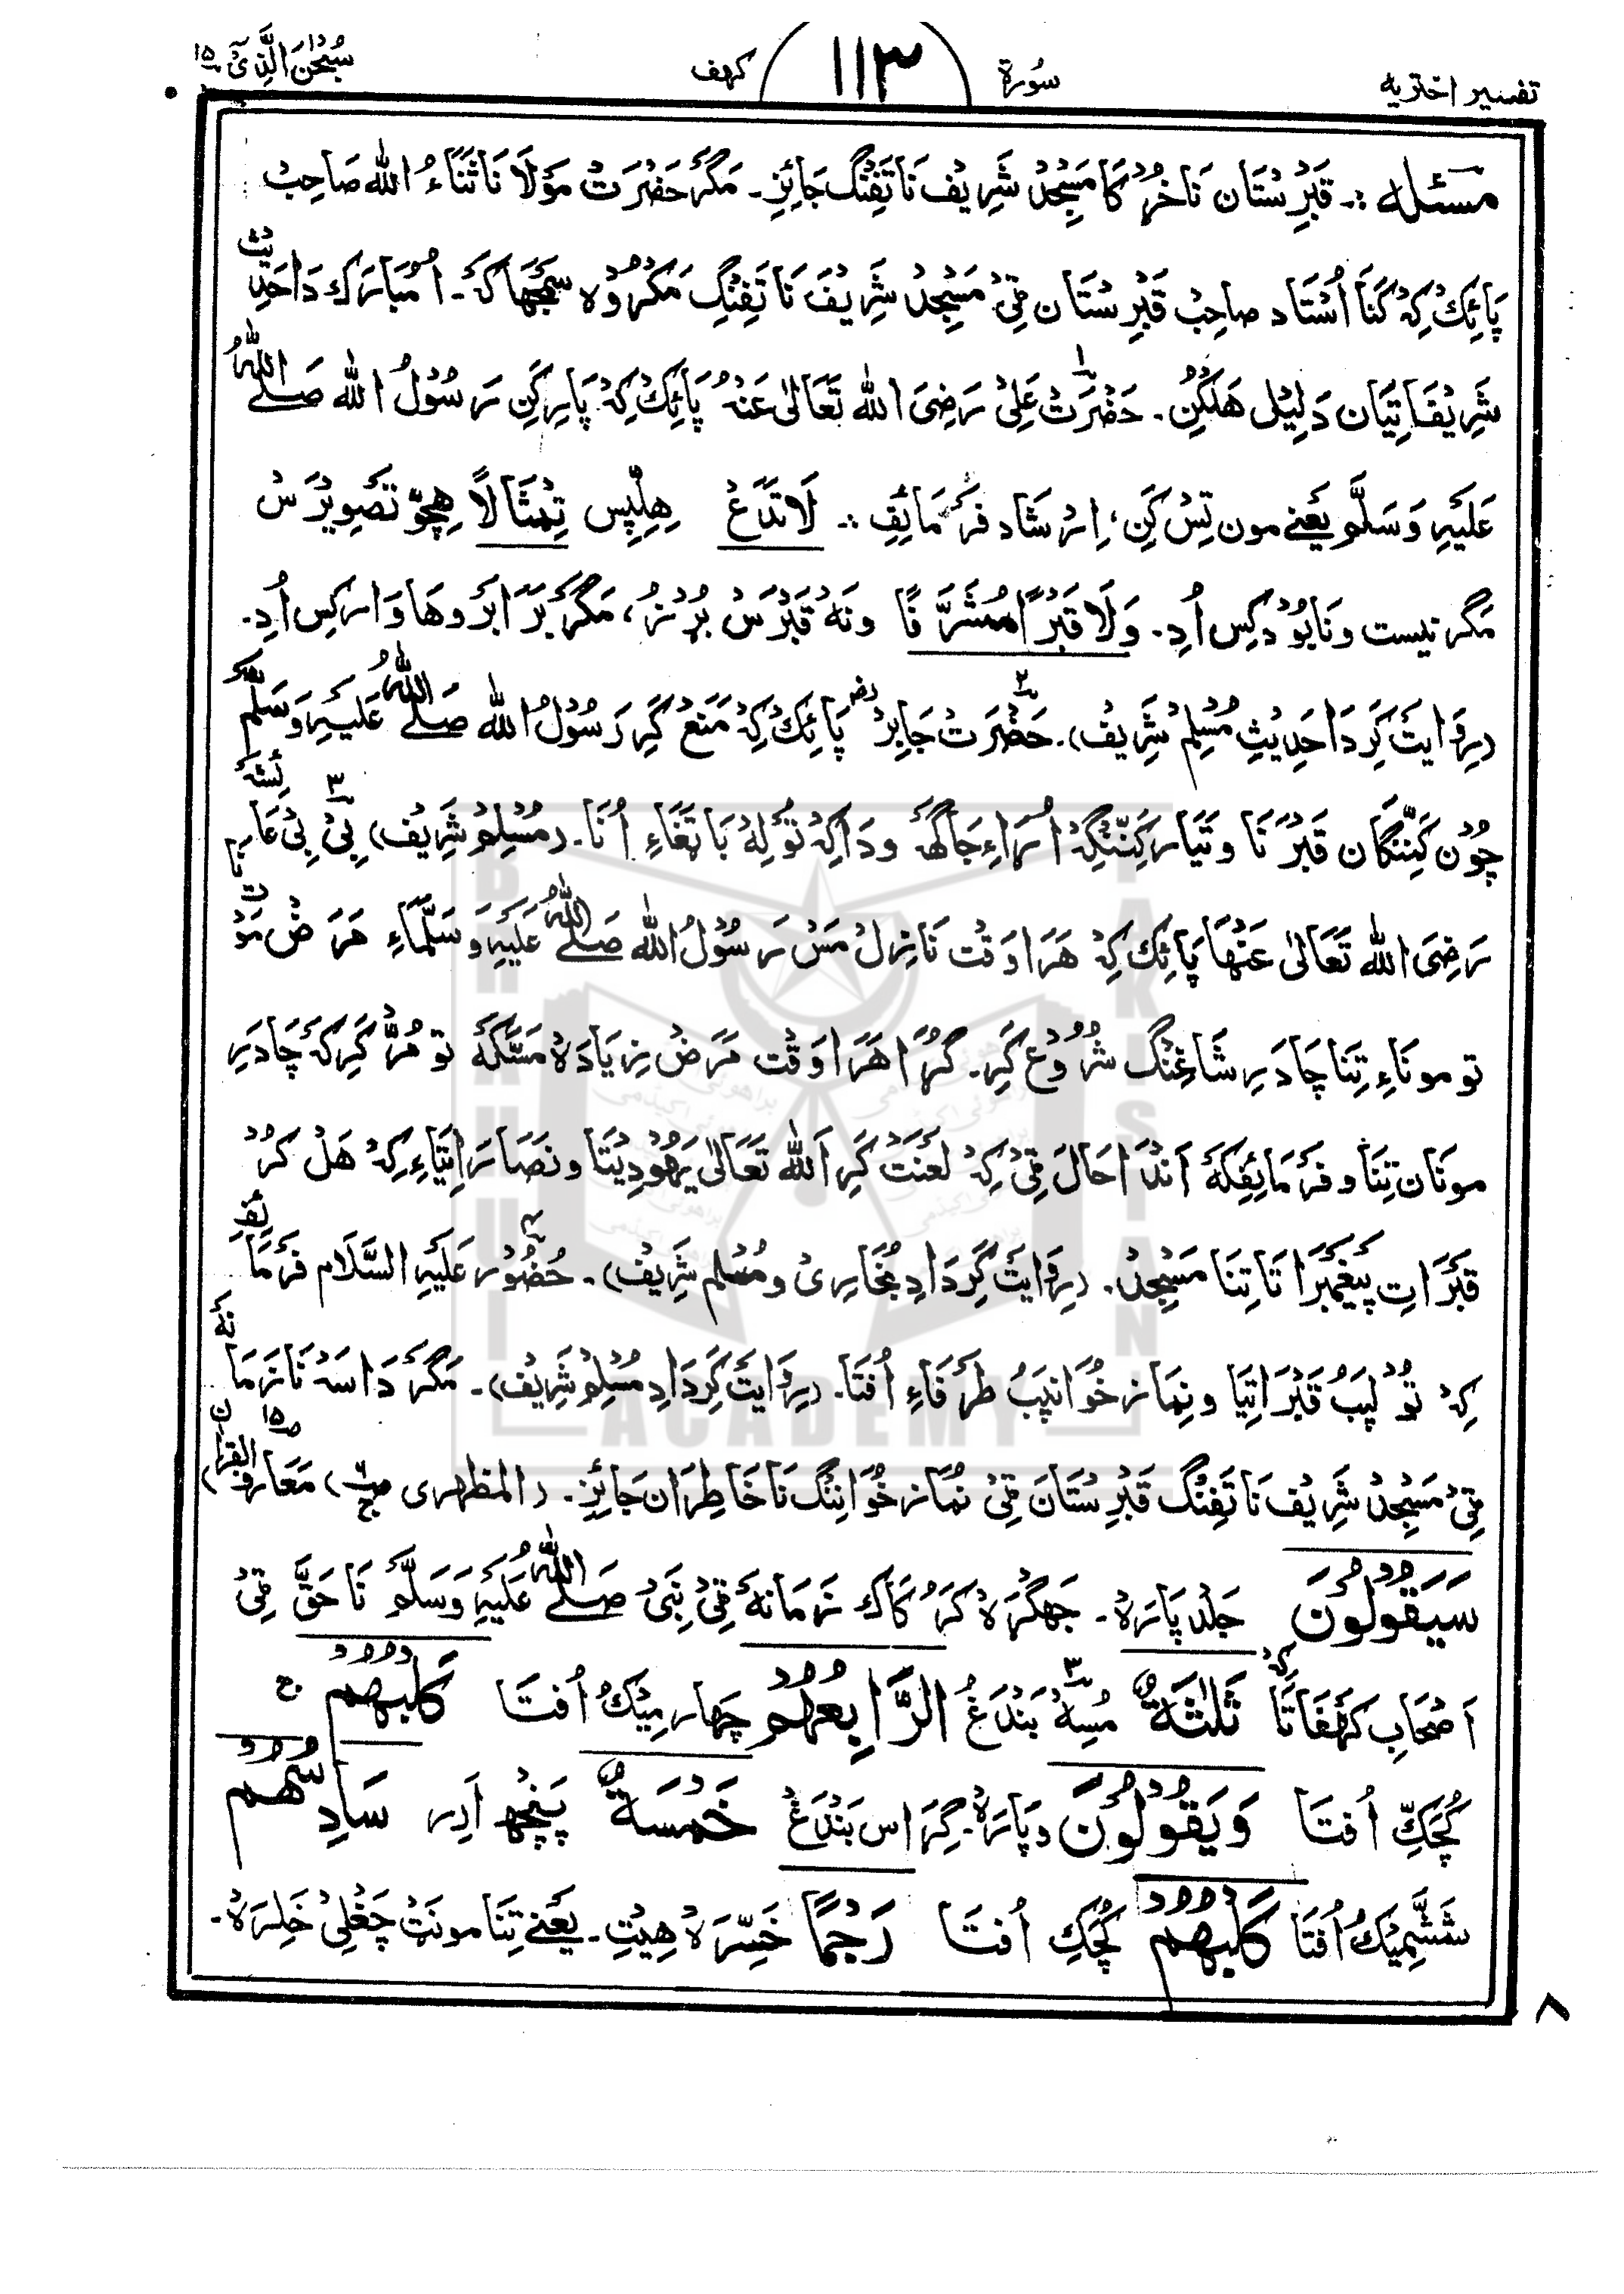 تفسیر اختریه سُورة ۱۱۳ کهف سُبْحٰنَ الَّذِیْ ۱۵
مسئله :۔ قَبْرِسْتَان نَا خُرْکَا مَسْجِدْ شَرِیْف نَا تَفِنْگ جَائِزِ۔ مَگَرْ حَضْرَتْ مَوْلَانَا ثَنَاءُ الله صَاحِبْ
پَائِکْ کِهْ کَنَا اُسْتَاد صاحِبْ قَبْرِسْتَان ٹِیْ مَسْجِدْ شَرِیْفَ نَا تَفِنْگِ مَکْرُوْه سَمْجَهَاکَهٗ۔ اُ مُبَارَک دَا حَدِیْث
شَرِیْفَاتِیَان دَلِیْل هَلْکُنِ۔ ۱ حَضْرَتْ عَلِیْ رَضِیَ الله تَعَالٰی عَنْهُ پَائِکْ کِهْ پَارِکَنِ رَسُوْلُ الله صَلَّی اللهُ
عَلَیْهِ وَسَلَّم یَعْنِے مون تِسْ کَنِ، اِرْشَاد فَرْمَائِفِ :۔ لَا تَدَعْ هِلِّپِس تِمْثَالًا هِچّو تَصْوِیْرَسْ
مَگَر نیست و نَابُوْد کِس اُدِ۔ وَلَا قَبْرًا مُشَرَّفًا وَ نَهْ قَبْرَسْ بُرْزُ، مَگَرْ بَرَابَرْ و هَاوَار کِس اُدِ۔
(رِوَایَتْ کَرِ دَا حَدِیْثِ مُسْلِمْ شَرِیْف)۔ ۲ حَضْرَتْ جَابِرْ رض پَائِکْ کِهْ مَنَعْ کَرِ رَسُوْلُ الله صَلَّی اللهُ عَلَیْهِ وَسَلَّم
چُوْن کَنِّنْگَان قَبْرْنَا و تَیَّار کَنِّنْگِهْ اُرَاءِ جَاگَهه و دَاکِهْ تُوْلِهْ بَا تَغَاءِ اُنَا۔ (مُسْلِمْ شَرِیْف) ۳ بِیْ بِیْ عَائِشَهٗ
رَضِیَ الله تَعَالٰی عَنْهَا پَائِک کِهْ هَرَاوَقْت نَازِلْ مَسْ رَسُوْلُ الله صَلَّی اللهُ عَلَیْهِ وَسَلَّمَاءِ مَرَضْ مَوْت نَا
تو مونَاءِ تِنَا چَادَرِ شَاغِنْگ شُرُوْع کَرِ۔ گُڑَا هَرَاوَقْت مَرَضْ زِیَادَهْ مَسَّکَهٗ تو مُرْ کَرِکَهٗ چَادَرِ
مونَان تِنَا و فَرْمَائِفِکَهٗ اَنْدَا حَالَ ٹِیْ کِهْ لَعْنَتْ کَرِ اَلله تَعَالٰی یَهُوْدِیْتَا و نَصَارَاتِیَاءِ کِهْ هَلْ کُرْ
قَبْرَاتِ پَیْغَمْبَرَاتَا تِنَا مَسْجِدْ۔ (رِوَایَتْ کَرِ دَادِ بُخَارِیْ و مُسْلِم شَرِیْف)۔ ۴ حُضُوْر عَلَیْهِ السَّلَام فَرْمَائِفِ
کِهْ تُوْ لِپَبُ قَبْرَاتِیَا و نِمَاز خُوَانِپَبُ طَرَفَاءِ اُفْتَا۔ (رِوَایَتْ کَرِ دَادِ مُسْلِمْ شَرِیْف)۔ مَگَرْ دَاسَهْ نَا زَمَانَهٗ
ٹِیْ مَسْجِدْ شَرِیْف نَا تَفِنْگ قَبْرِسْتَان ٹِیْ نُمَاز خُوَانِنْگ نَا خَاطِرَان جَائِزِ۔ (المظهری ج ۶) مَعَارِفُ القُرْاٰن ص۱۵)
سَیَقُوْلُوْنَ جَلْد پَارَهْ۔ جَهگڑَهْ کَرُکَاک زَمَانَهٗ ٹِیْ نَبِیْ صَلَّی اللهُ عَلَیْهِ وَسَلَّم نَا حَقَّ ٹِیْ
اَصْحَابِ کَهَفَاتَا کِهْ ثَلٰثَةٌ مُسِهْ ۳ بَنْدَغْ الرَّابِعُهُمْ چَهارمِیْکُ اُفْتَا کَلْبُهُمْ ج
کُچَکِّ اُفْتَا وَیَقُوْلُوْنَ و پَارَهْ۔ گِرَاس بَنْدَغْ خَمْسَةٌ پَنْچْھ اَدِر سَادِسُهُمْ
شَشْمِیْکُ اُفْتَا کَلْبُهُمْ کُچَکِ اُفْتَا رَجْمًا خَسِّرَهْ هِیْتِ۔ یَعْنِے تِنَا مونَتْ چَغْلِیْ خَلِرَهْ۔
۸
BRAHUI
ACADEMY
PAKISTAN